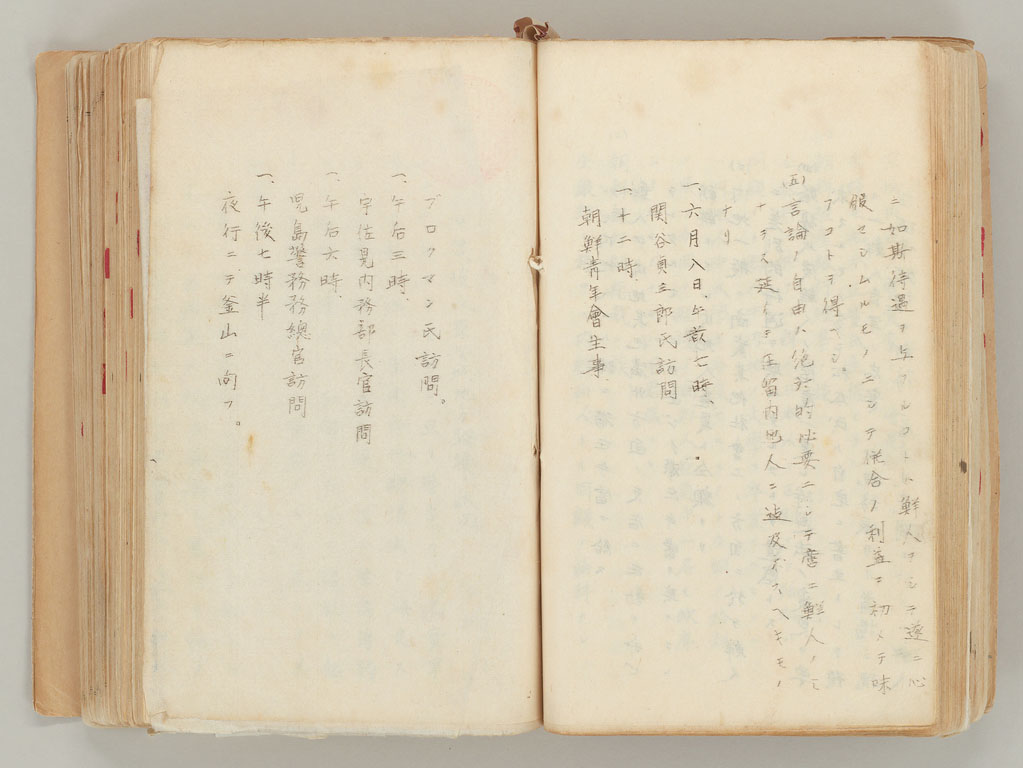 ニ如斯待遇ヲ与フルコトハ鮮人ヲシテ遂ニ心
服セシムルモノニシテ併合ノ利益ヲ初メテ味
フコトヲ得ベシ。
(五)言論ノ自由ハ絶対的必要ニシテ啻ニ鮮人ノミ
ナラス延イテ在留内地人ニ迨及ボスヘキモノ
ナリ
一、六月八日、午前七時、
関谷貞三郎氏訪問
一、十二時、
朝鮮青年會生事
ブロクマン氏訪問。
一、午后三時、
宇佐見内務部長官訪問
一、午后六時、
児島警務総官訪問
一、午後七時半
夜行ニテ釜山ニ向フ。